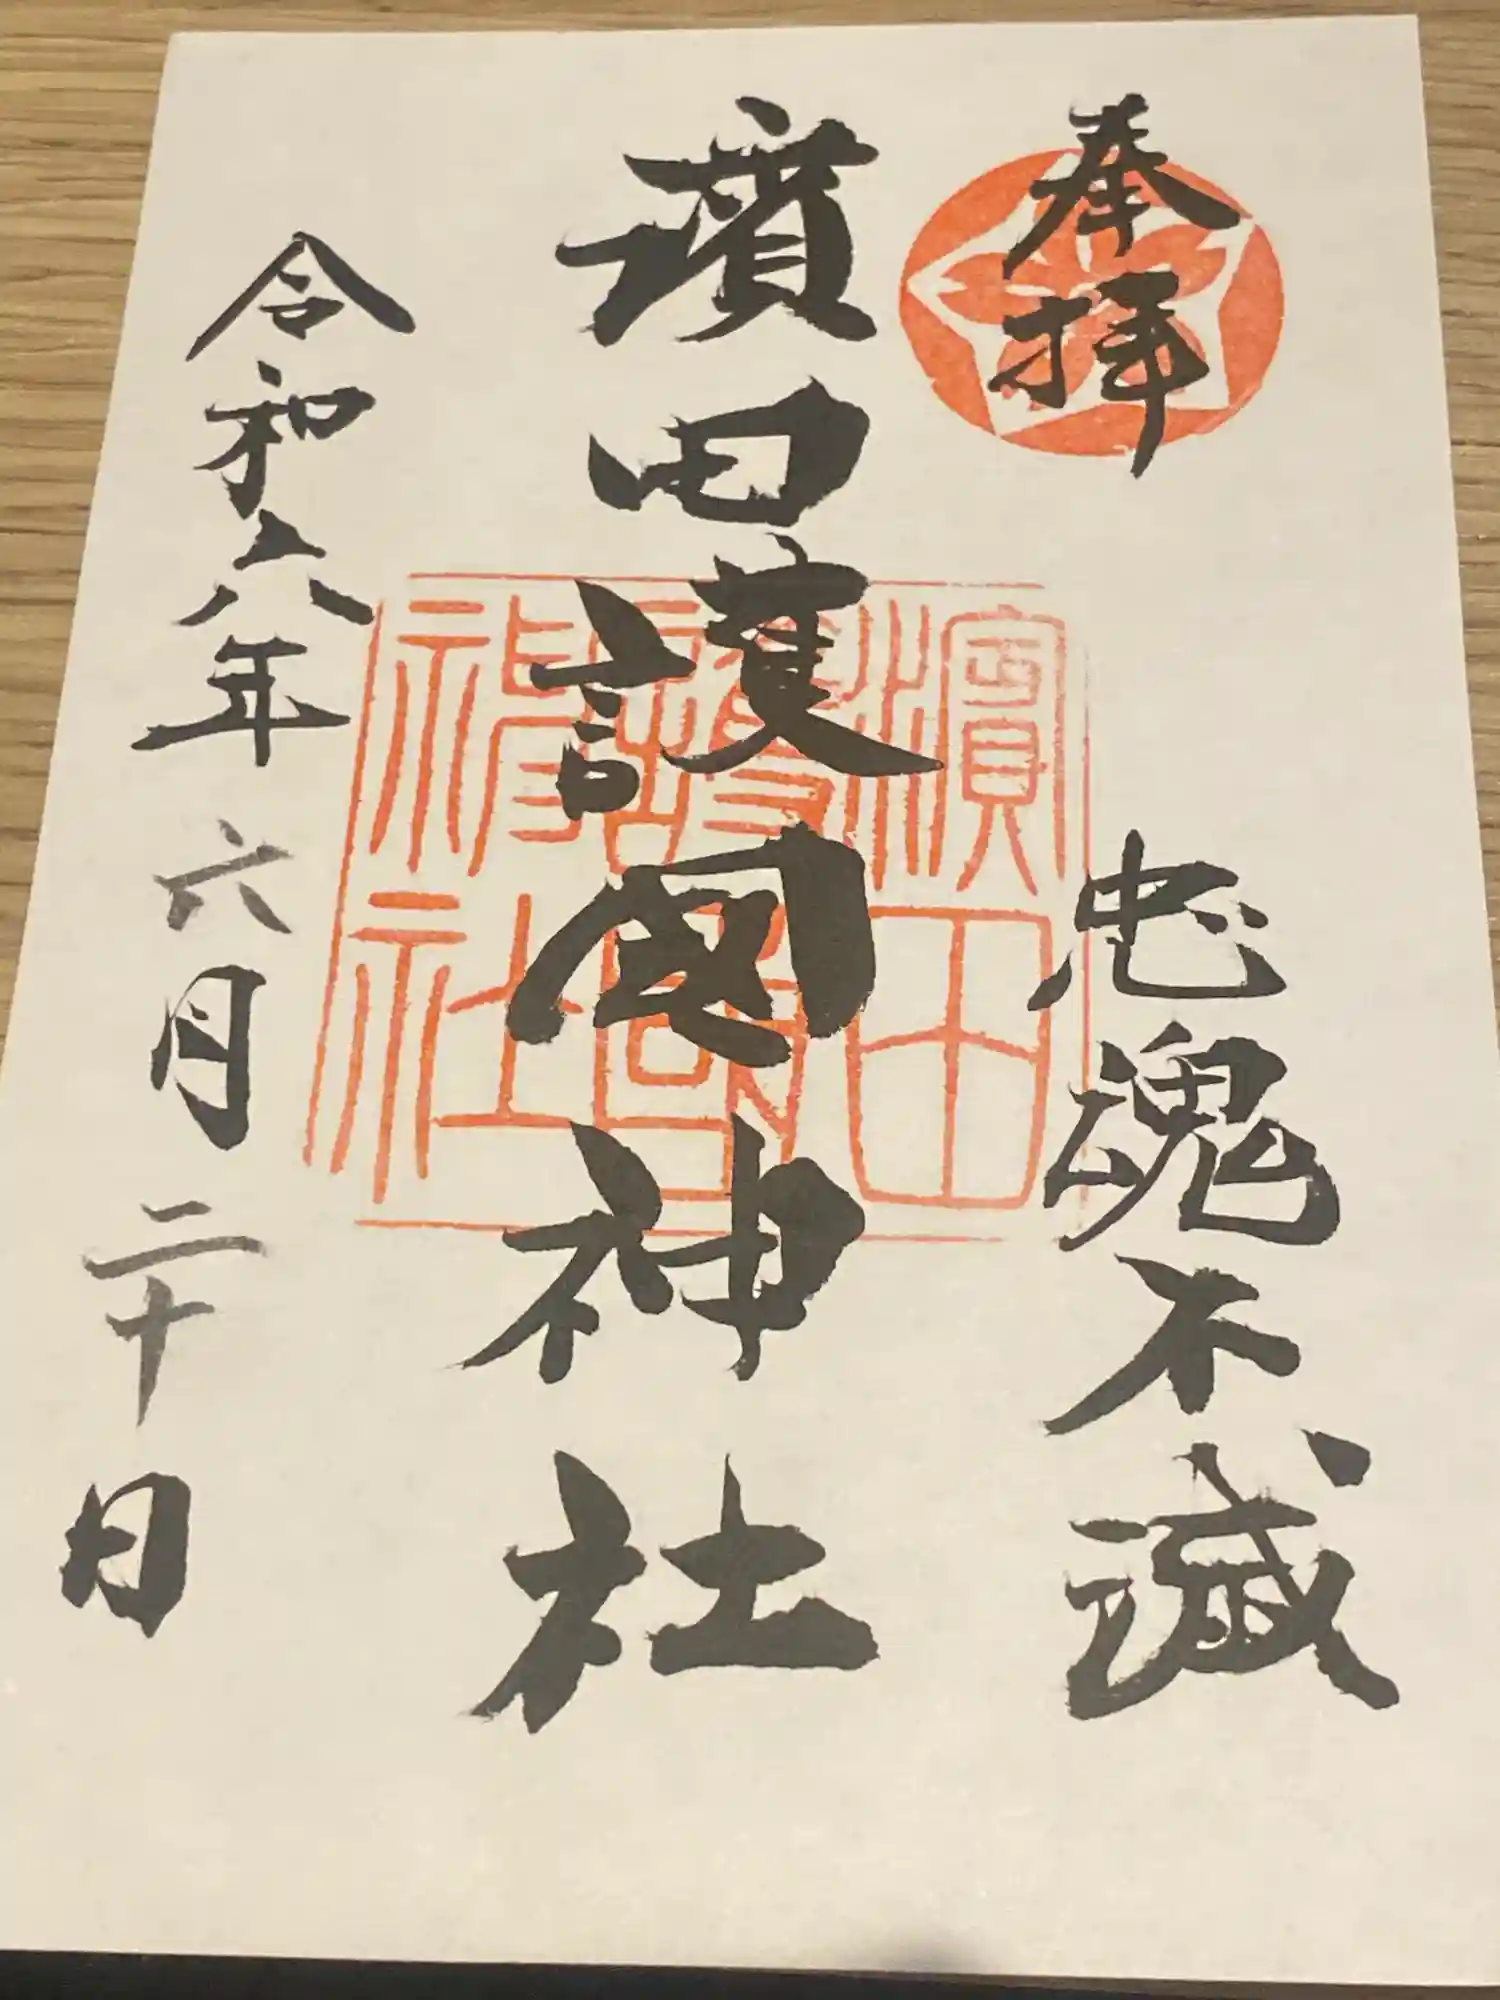 奉拝
忠魂不滅
濱田護國神社
濱田
護國
神社
令和六年六月二十日